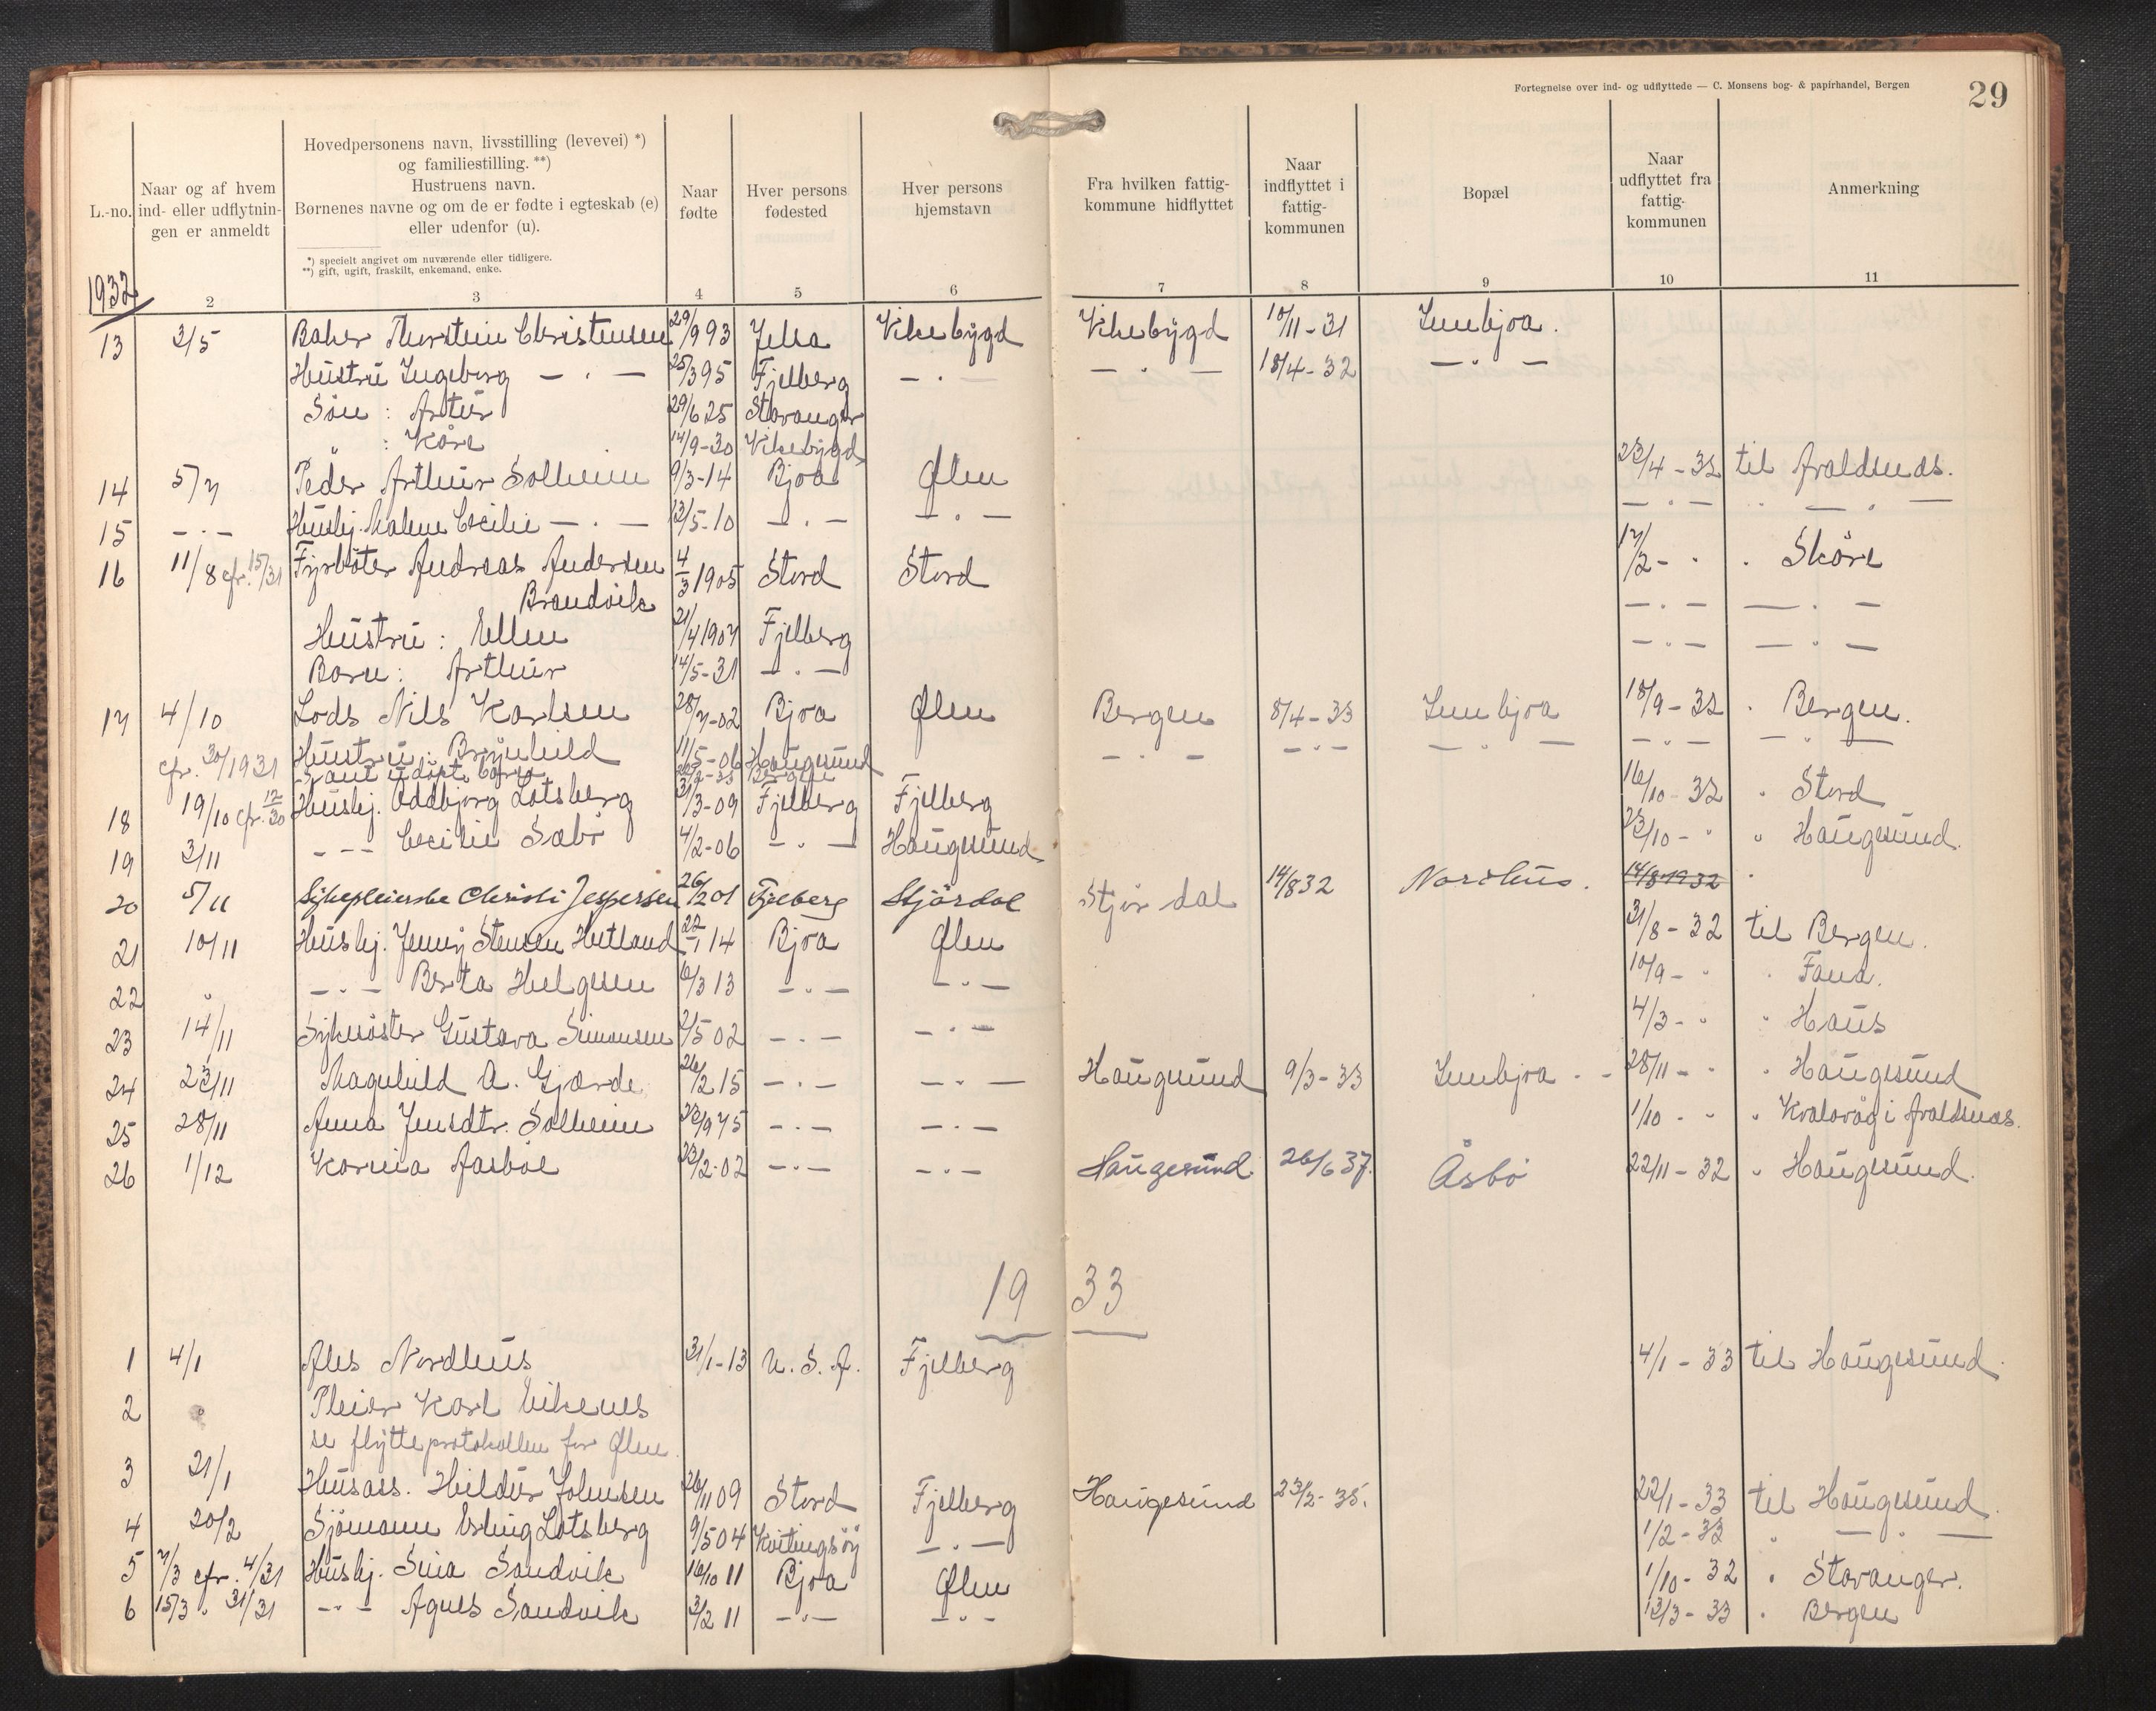 Fortegnelse over ind- og udflyttede — C. Monsens bog- & papirhandel, Bergen
29
L.-no.
Naar og af hvem ind- eller udflytnin-gen er anmeldt
Hovedpersonens navn, livsstilling (levevei) *) og familiestilling. **) Hustruens navn. Børnenes navne og om de er fødte i egteskab (e) eller udenfor (u).
*) specielt angivet om nuværende eller tidligere.
**) gift, ugift, fraskilt, enkemand, enke.
Naar fødte
Hver persons fødested
Hver persons hjemstavn
Fra hvilken fattig-kommune hidflyttet
Naar indflyttet i fattig-kommunen
Bopæl
Naar udflyttet fra fattig-kommunen
Anmerkning
1932 2 3 4 5 6 7 8 9 10 11
13 3/5 Baker Thorstein Christensen 29/9 93 Jelsa Vikebygd Vikebygd 10/11-31 Innbjoa.
Hustru Ingeborg — " — 25/3 95 Fjelberg — " — — " — 18/4-32 — " —
Søn : Artur 29/6 25 Stavanger
" : Kåre 14/9-30 Vikebygd
14 5/7 Peder Arthur Solheim 9/3-14 Bjoa Ølen 23/4-32 til Avaldsnes.
15 — " — Hushj. Malene Cecilie — " — 13/5-10 — " — — " — — " — " — " —
16 11/8 cfr. 15/31 Fyrbøter Andreas Andersen 4/3 1905 Stord Stord 17/2- " " Skåre
Brandvik — " — — " —
Hustru : Ellen 21/4 1907 Fjelberg — " — — " —
Barn : Arthur 14/5-31 — " —
17 4/10 Lods Nils Karlsen 28/7-02 Bjoa Ølen Bergen 8/4-33 Innbjoa 18/9-32 " Bergen.
cfr. 30/1931 Hustru : Brynhild 11/5-06 Haugesund — " — — " — — " — — " — — " —
Samt udøpt barn Bergen
18 19/10 cfr. 12/30 Hushj. Oddbjørg Lotsberg 31/3-09 Fjelberg Fjelberg 16/10-32 " Stord
19 3/11 — " — Cecilie Sæbø 4/2-06 — " — Haugesund 23/10- " " Haugesund.
20 5/11 Sykepleierske Christi Jespersen 26/2 01 Fjelberg Stjördal Stjördal 14/8 32 Nordhus. 14/8 1932 "
21 10/11 Hushj. Jenny Stensen Hetland 22/1 14 Bjoa Ølen 31/8-32 til Bergen.
22 " — " — Berta Helgesen 6/3 13 — " — — " — 10/9- " " Fana.
23 14/11 Sykesøster Gustava Simonsen 2/5 02 — " — — " — 4/3- " " Haus
24 23/11 Magnhild A. Gjærde 26/2 15 — " — — " — Haugesund 9/3-33 Innbjoa 28/11- " " Haugesund
25 28/11 Anna Jensdtr. Solheim 23/9 75 — " — — " — 1/10- " " Kvalavåg i Avaldsnes.
26 1/12 Karina Aasbøe 23/2-02 — " — — " — Haugesund 26/6 37. Åsbø 22/11-32 " Haugesund.
1933
1 4/1 Ales Nordhus 31/1-13 U. S. A. Fjelberg 4/1-33 til Haugesund.
2 " Pleier Karl Eikenes
se flytteprotokollen for Ølen.
3 21/1 Husass. Hildur Johnsen 26/11 09 Stord Fjelberg Haugesund 23/2-35. 22/1-33 til Haugesund.
4 20/2 Sjömann Erling Lotsberg 9/5 04 Kvitingsøy — " — 1/2-33 " — " —
5 7/3 cfr. 4/31 Hushj. Sina Sandvik 16/10 11 Bjoa Ølen 1/10-32 " Stavanger.
6 15/3 " 31/31 — " — Agnes Sandvik 3/2 11 — " — — " — 13/3-33 " Bergen